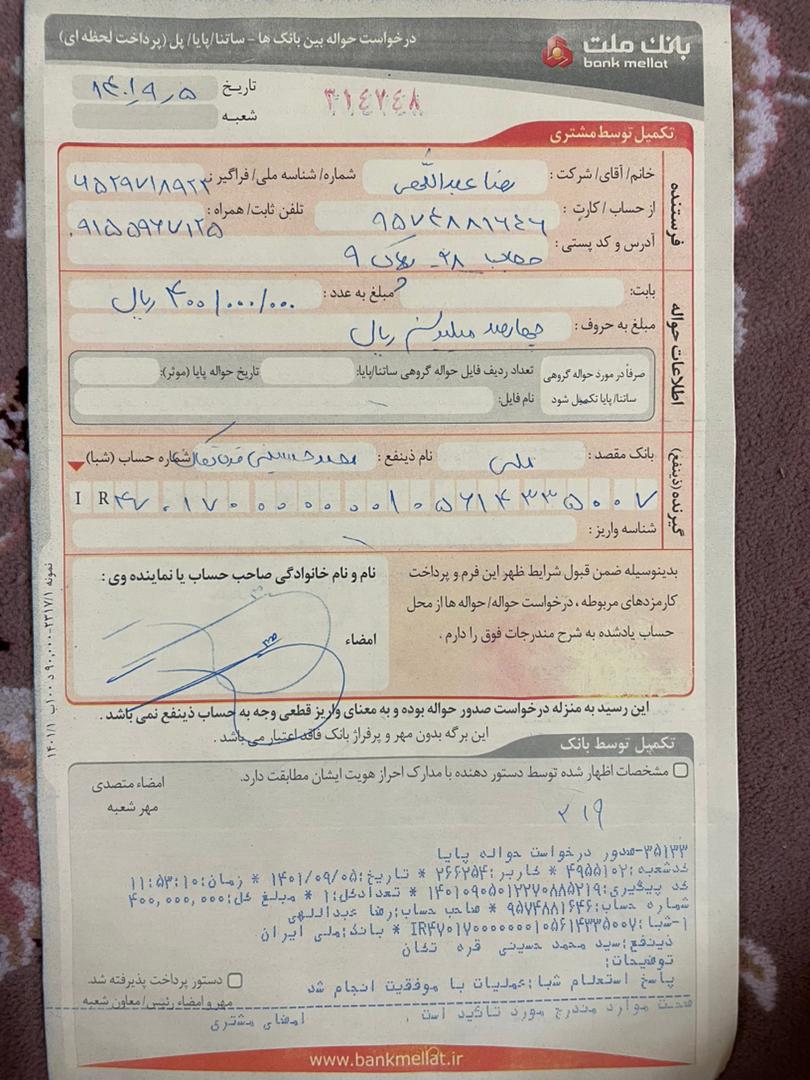 درخواست حواله بین بانک ها - ساتنا/پایا/ پل (پرداخت لحظه ای)
بانک ملت
bank mellat
تاریخ ۱۴۰۱٫۹٫۵
شعبه
۳۱۴۷۴۸
تکمیل توسط مشتری
فرستنده
خانم/ آقای/ شرکت: رضا عبداللهی شماره/ شناسه ملی/ فراگیر:
از حساب / کارت: ۹۵۷۴۸۸۱۶۴۶ تلفن ثابت/ همراه: ۰۹۱۵۵۹۶۷۱۲۵
آدرس و کد پستی: ۲۸- پلاک ۹
اطلاعات حواله
بابت: مبلغ به عدد: ۴۰۰/۰۰۰/۰۰۰ ریال
مبلغ به حروف: چهارصد میلیون ریال
صرفاً در مورد حواله گروهی ساتنا/ پایا تکمیل شود
تعداد ردیف فایل حواله گروهی ساتنا/پایا: تاریخ حواله پایا (موثر):
نام فایل:
گیرنده (ذینفع)
بانک مقصد: ملی نام ذینفع: محمد حسینی قره تکان شماره حساب (شبا)
IR ۴۷۰۱۷۰۰۰۰۰۰۰۱۰۵۶۱۴۳۳۵۰۰۷
شناسه واریز:
بدینوسیله ضمن قبول شرایط ظهر این فرم و پرداخت
کارمزدهای مربوطه، درخواست حواله/ حواله ها از محل
حساب یادشده به شرح مندرجات فوق را دارم.
نام و نام خانوادگی صاحب حساب یا نماینده وی:
امضاء
این رسید به منزله درخواست صدور حواله بوده و به معنای واریز قطعی وجه به حساب ذینفع نمی باشد.
این برگه بدون مهر و پرفراژ بانک فاقد اعتبار می باشد.
تکمیل توسط بانک
مشخصات اظهار شده توسط دستور دهنده با مدارک احراز هویت ایشان مطابقت دارد.
امضاء متصدی
مهر شعبه
۲۱۹
۳۵۱۳۳-صدور درخواست حواله پایا
کدشعبه:۴۹۵۵۱۰۲ * کاربر:۲۶۶۲۵۴ * تاریخ:۱۴۰۱/۰۹/۰۵ * زمان:۱۱:۵۳:۱۰
کد پیگیری:۱۴۰۱۰۹۰۵۰۱۲۲۷۰۸۸۵۲۱۹ * تعدادکل:۱ * مبلغ کل:۴۰۰,۰۰۰,۰۰۰
شماره حساب:۹۵۷۴۸۸۱۶۴۶ * صاحب حساب:رضا عبداللهی
۱-شبا:IR۴۷۰۱۷۰۰۰۰۰۰۰۱۰۵۶۱۴۳۳۵۰۰۷ * بانک:ملی ایران
ذینفع:سید محمد حسینی قره تکان
توضیحات:
پاسخ استعلام شبا:عملیات با موفقیت انجام شد
صحت موارد مندرج مورد تائید است . امضای مشتری
دستور پرداخت پذیرفته شد.
مهر و امضاء رئیس/ معاون شعبه
نمونه ۲۳۱۷/۱-۹۰,۰۰۰ د ۱۰۰ ب ۱۴۰۱/۱
www.bankmellat.ir